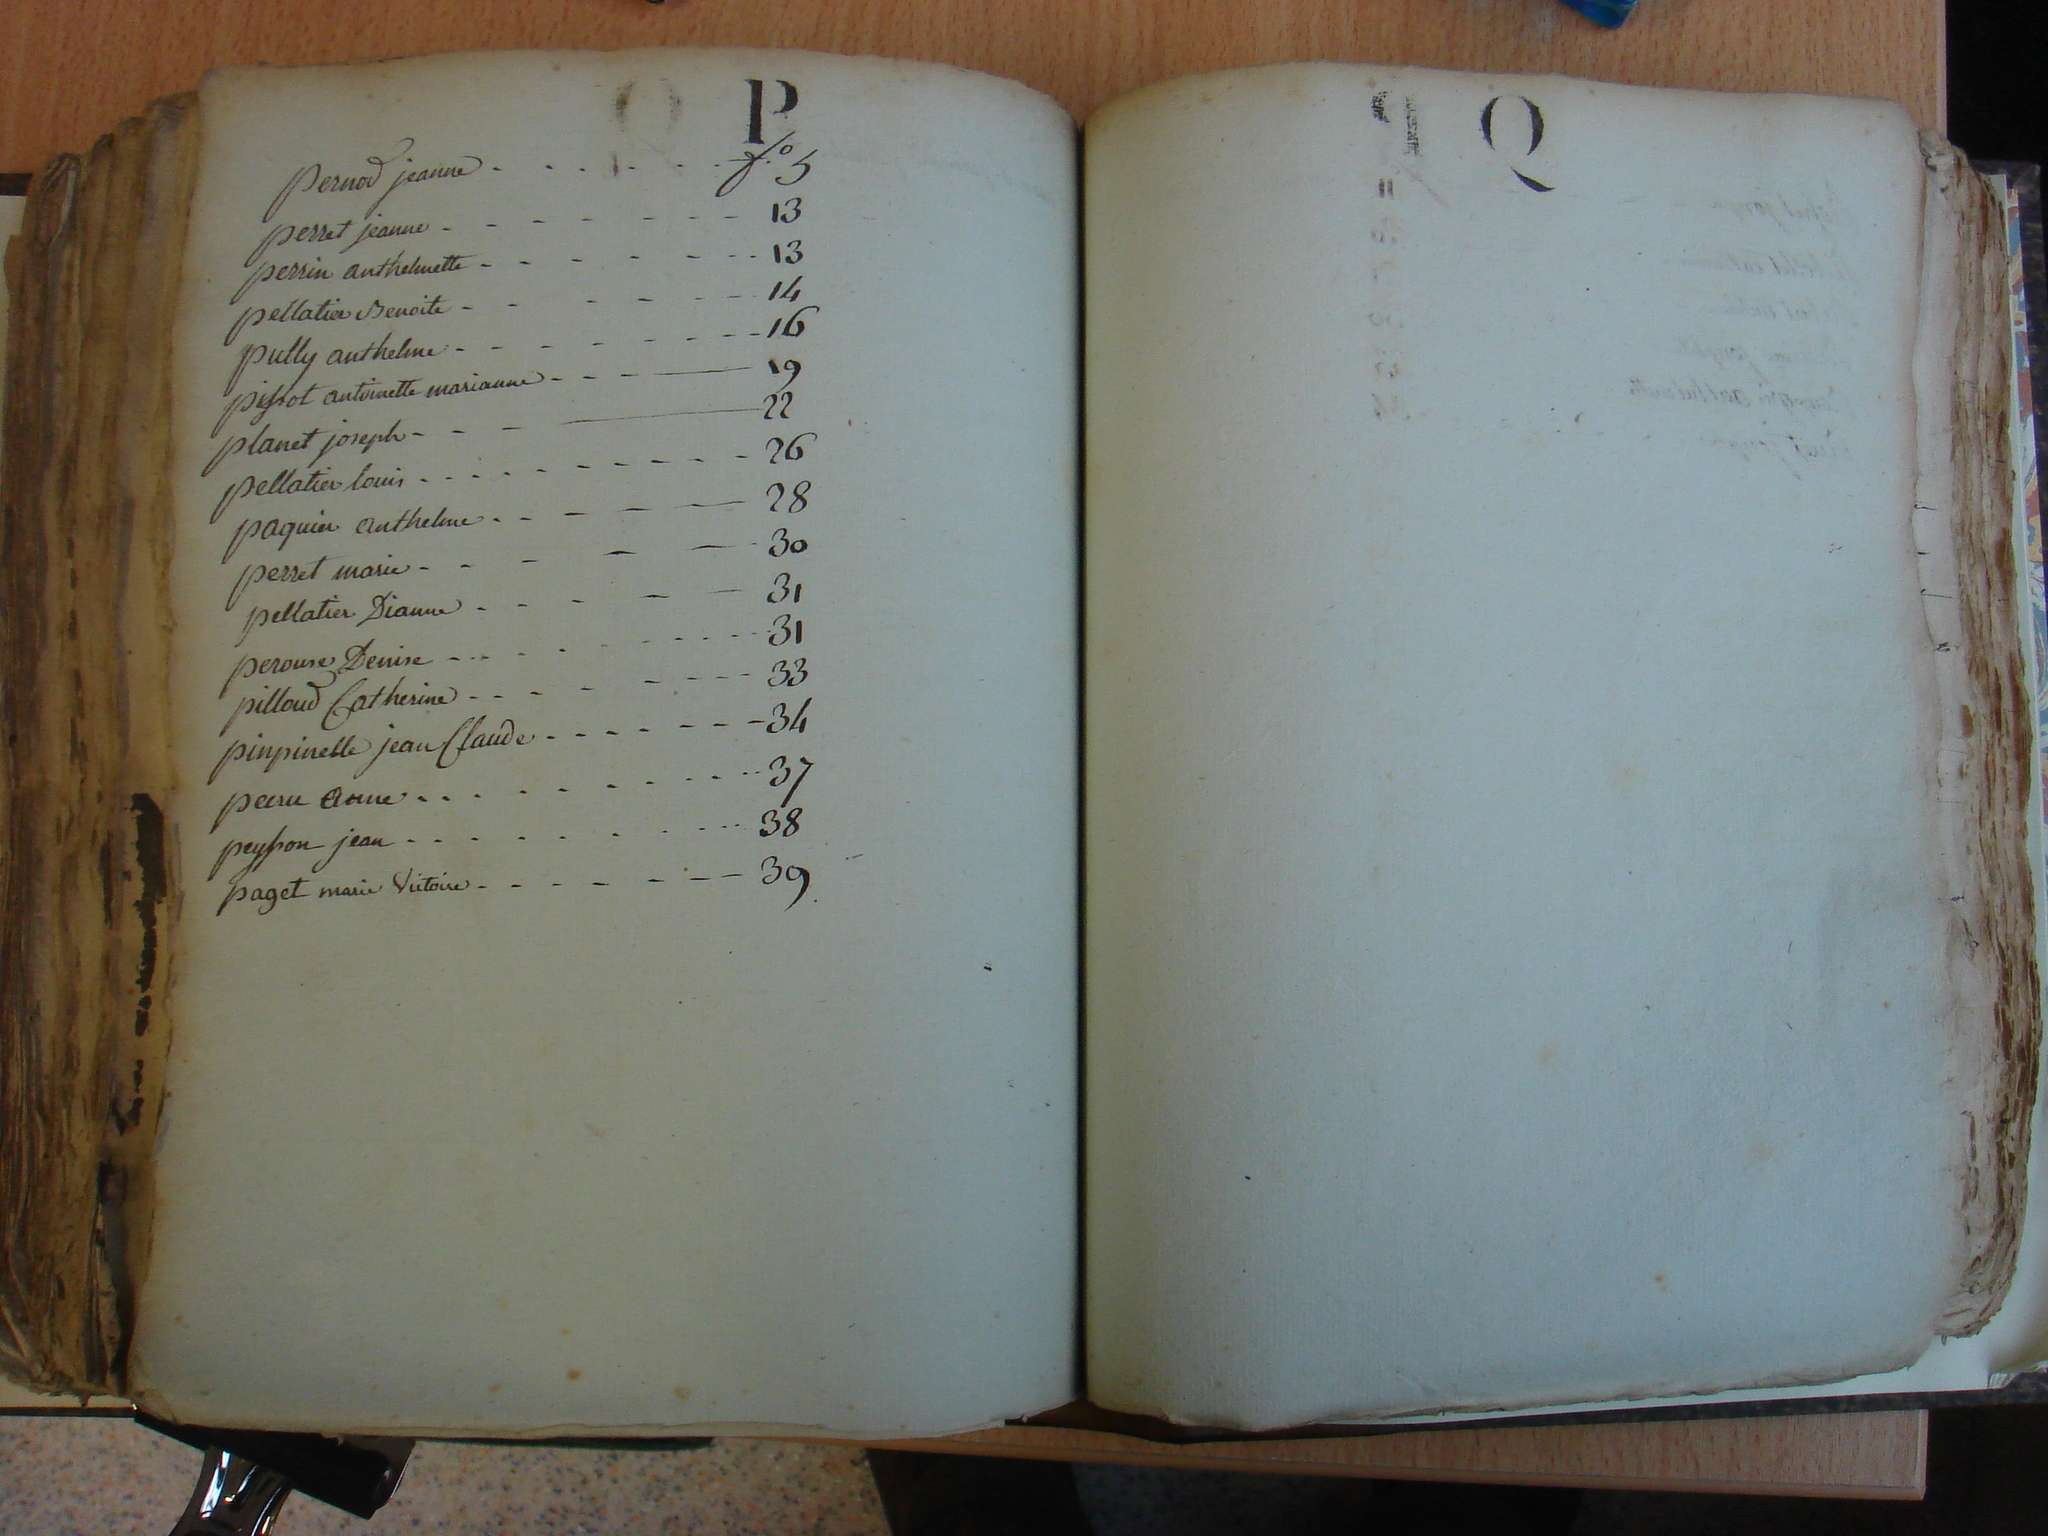 P
pernod jeanne f.o 5
perret jeanne 13
perrin anthelmette 13
pellatier Benoite 14
pully anthelme 16
pissot antoinette marianne 19
planet joseph 22
pellatier louis 26
paquier anthelme 28
perret marie 30
pellatier Dianne 31
perouse Denise 31
pilloud Catherine 33
pinpinelle jean Claude 34
anne 37
peysson jean 38
paget marie Victoire 39
Q